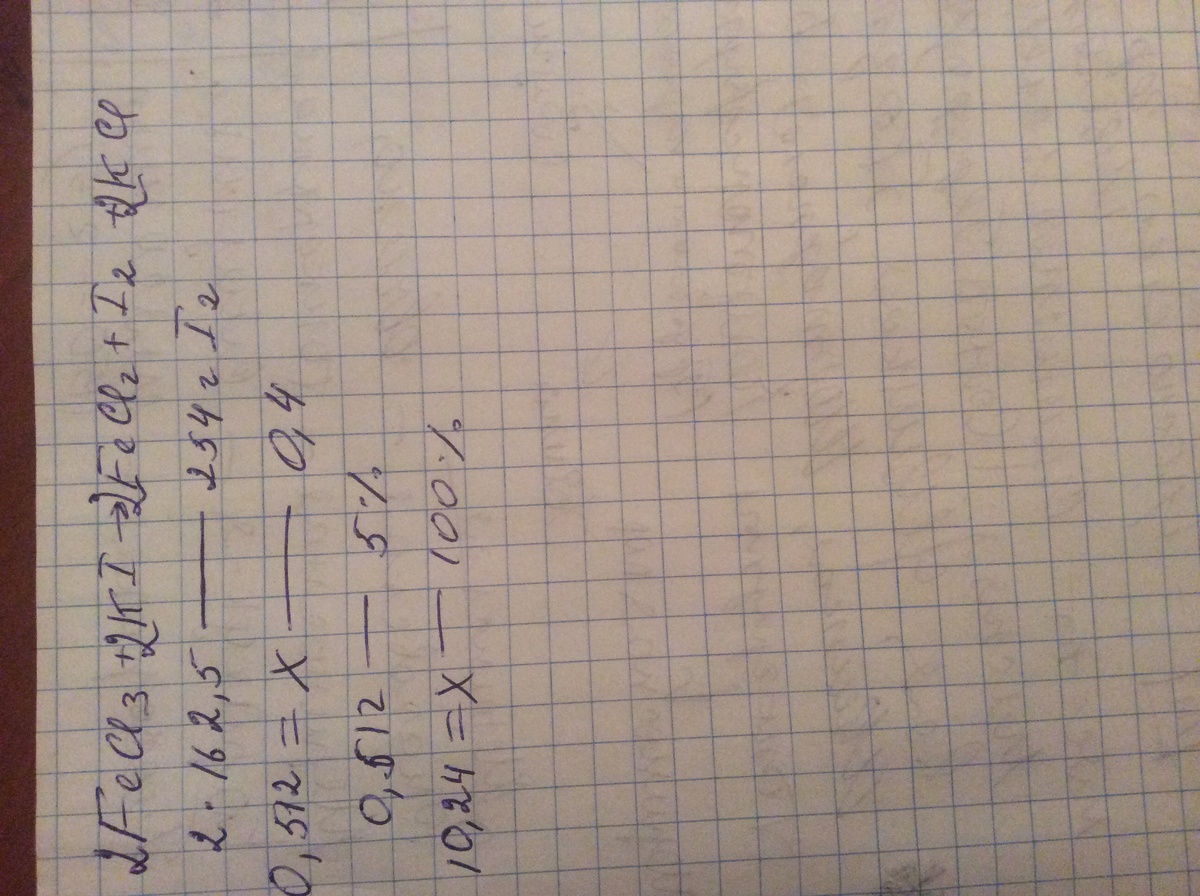 2FeCl₃ +2KI → 2FeCl₂ + I₂ +2KCl
2 · 162,5 — 254 г I₂
0,512 = X — 0,4
0,512 — 5%
10,24 = X — 100%